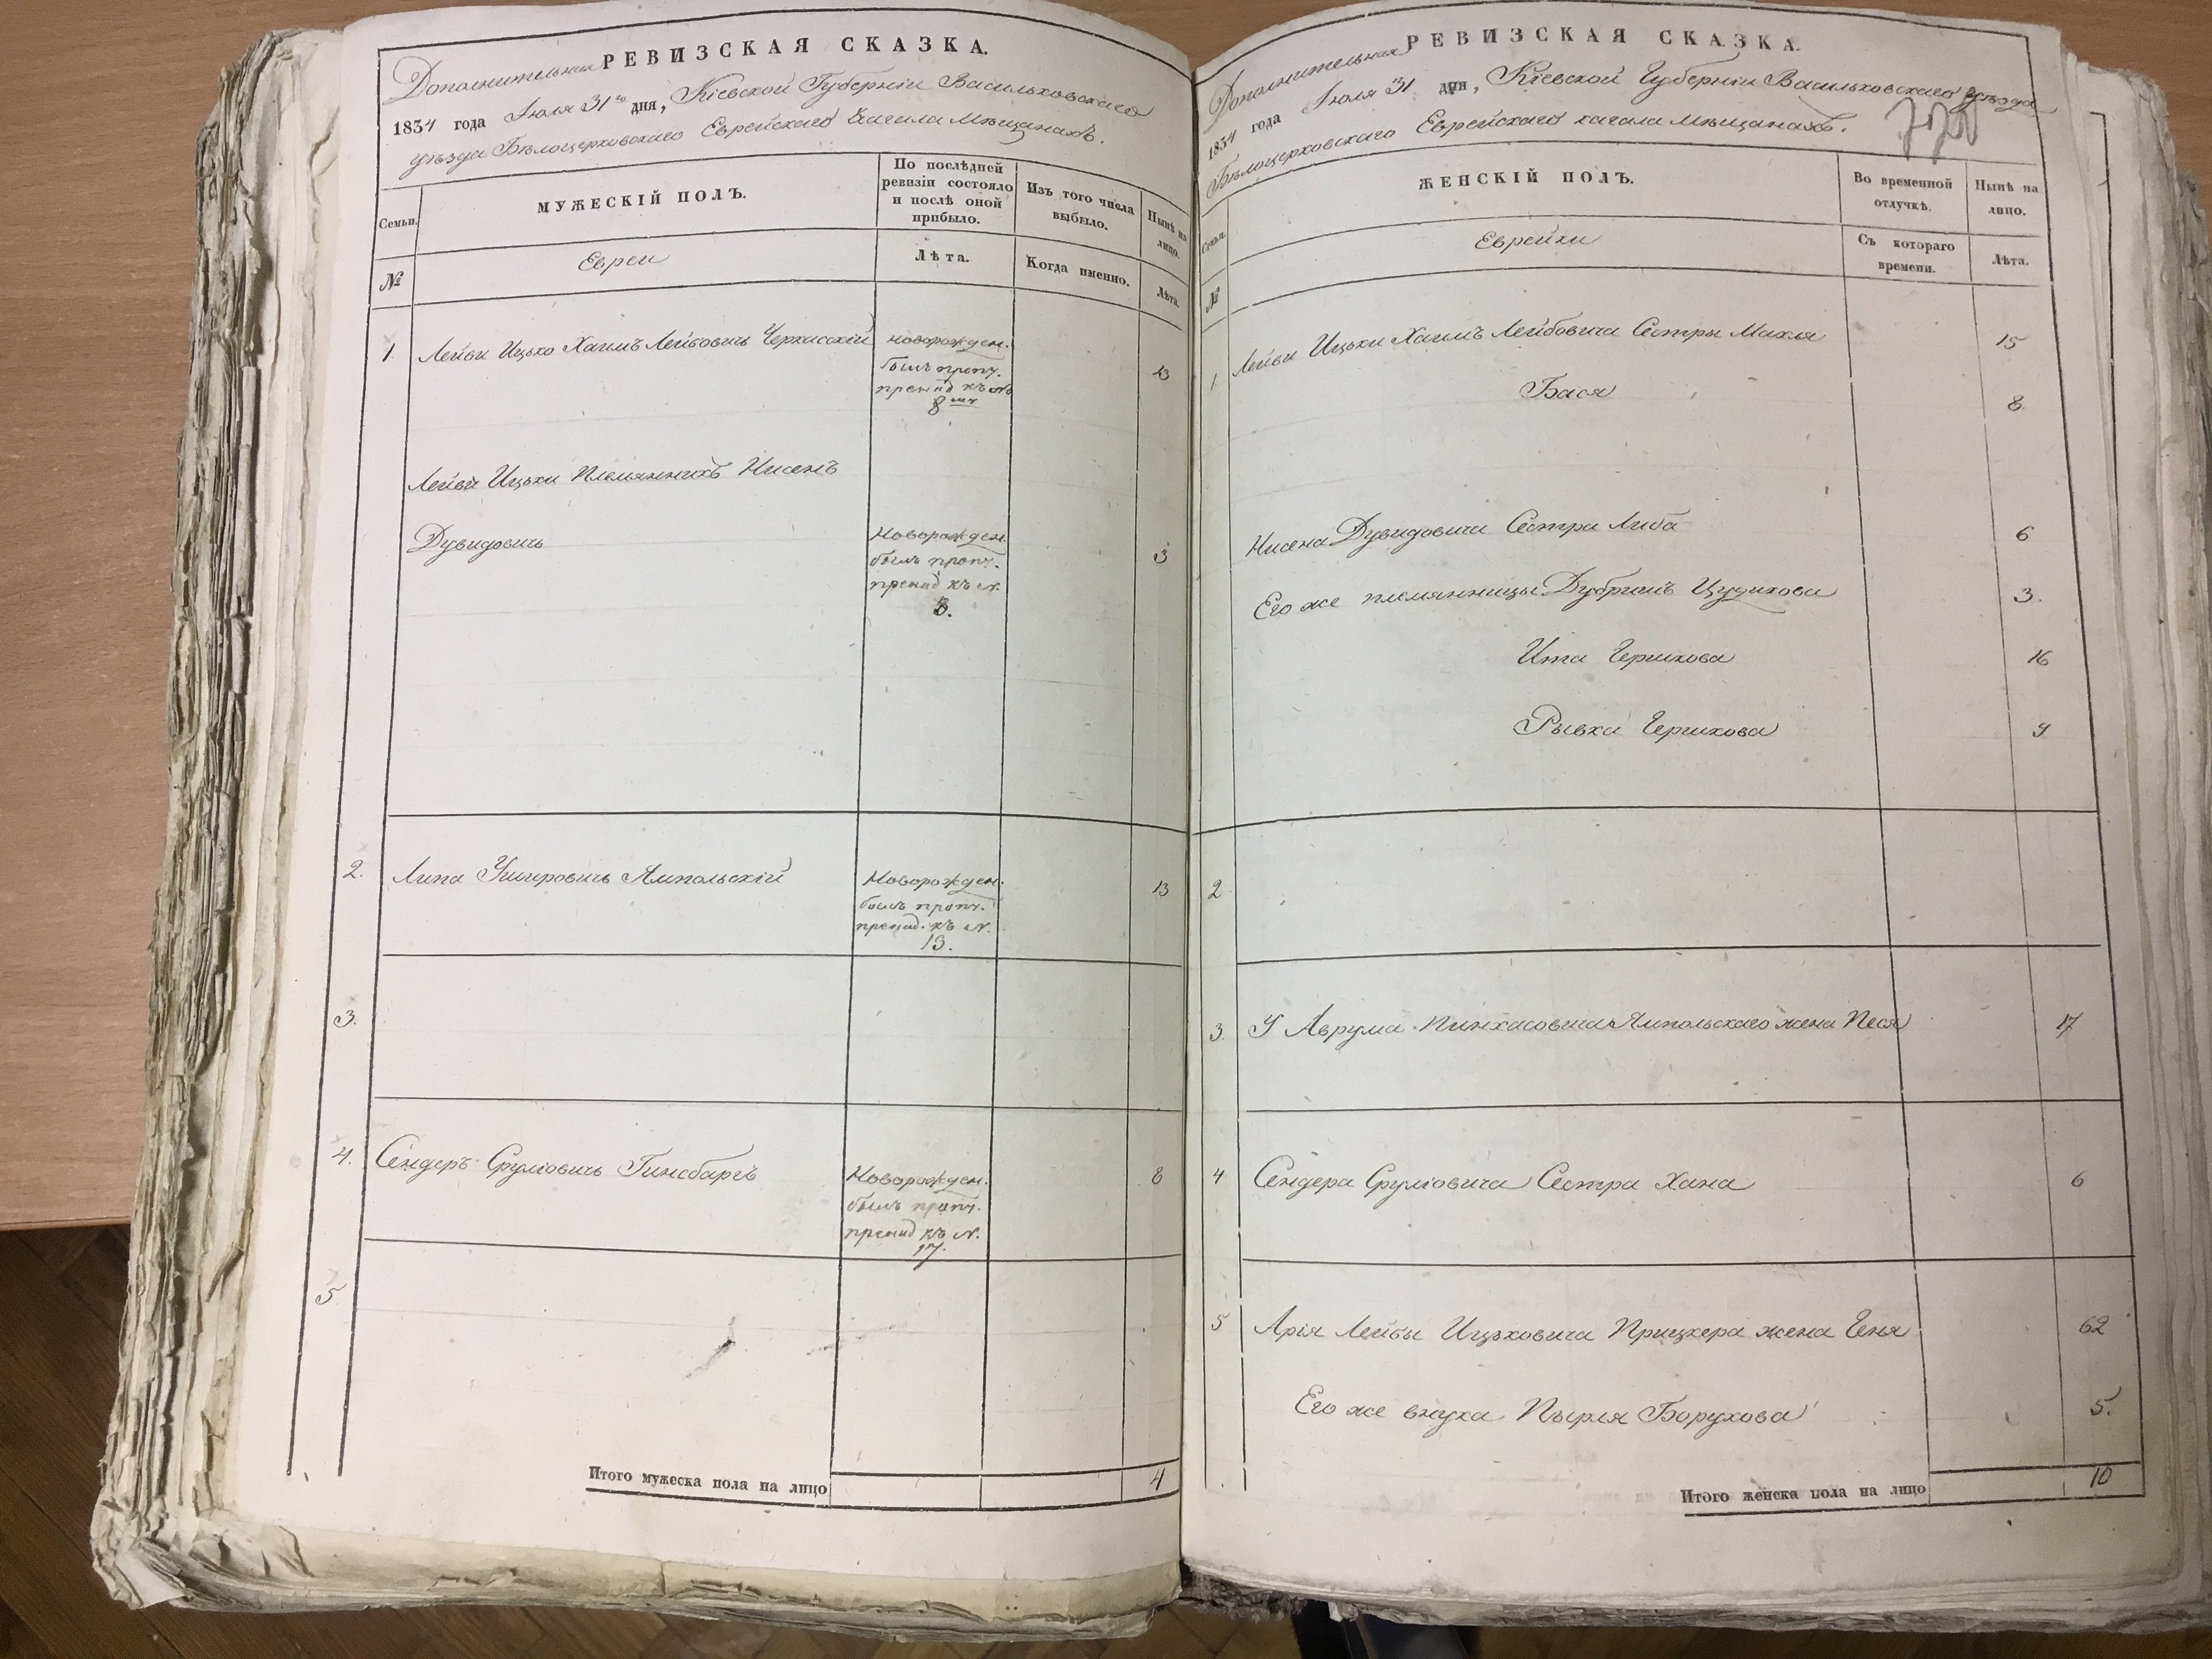 РЕВИЗСКАЯ СКАЗКА.
Дополнительная
1834 года Іюля 31го дня, Кіевской Губерніи Васильковскаго
уѣзда Бѣлоцерковскаго Еврейскаго Кагала Мѣщанахъ.
Семьи.
МУЖЕСКІЙ ПОЛЪ.
По послѣдней
ревизіи состояло
и послѣ оной
прибыло.
Изъ того числа
выбыло.
Нынѣ на
лицо.
№
Евреи
Лѣта.
Когда именно.
Лѣта.
1. Лейви Ицько Хаимъ Лейбовичь Черкасскій новорожден. 13
былъ проп.
пренад къ №
8
Лейви Ицьки Племянникъ Нисенъ
Дувидовичь Новорожден. 3
былъ проп.
пренад къ №.
8.
2. Липа Ушеровичь Ямпольскій Новорожден. 13
былъ проп.
пренад. къ №.
13.
3.
4. Сендеръ Сруліовичь Гинсбаргъ Новорожден. 8
былъ проп.
пренад къ №.
17.
5
Итого мужеска пола на лицо 4
РЕВИЗСКАЯ СКАЗКА.
Дополнительная
1834 года Іюля 31 дня, Кіевской Губерніи Васильковскаго уѣзда
Бѣлоцерковскаго Еврейскаго кагала Мѣщанахъ.
Семьи.
ЖЕНСКІЙ ПОЛЪ.
Во временной
отлучкѣ.
Нынѣ на
лицо.
№
Еврейки
Съ котораго
времени.
Лѣта.
1 Лейви Ицьки Хаимъ Лейбовича Сестры Махля 15
Бася 8
Нисена Дувидовича Сестра Либа 6
Его же племянницы Дубришъ Цудикова 3.
Ита Гершкова 16
Рывка Гершкова 9
2
3. У Аврума Пинхасовича Ямпольскаго жена Песя 17
4 Сендера Сруліовича Сестра Хана 6
5 Арія Лейбы Ицьковича Прицкера жена Геня 62
Его же внука Пырля Борухова 5.
Итого женска пола на лицо 10